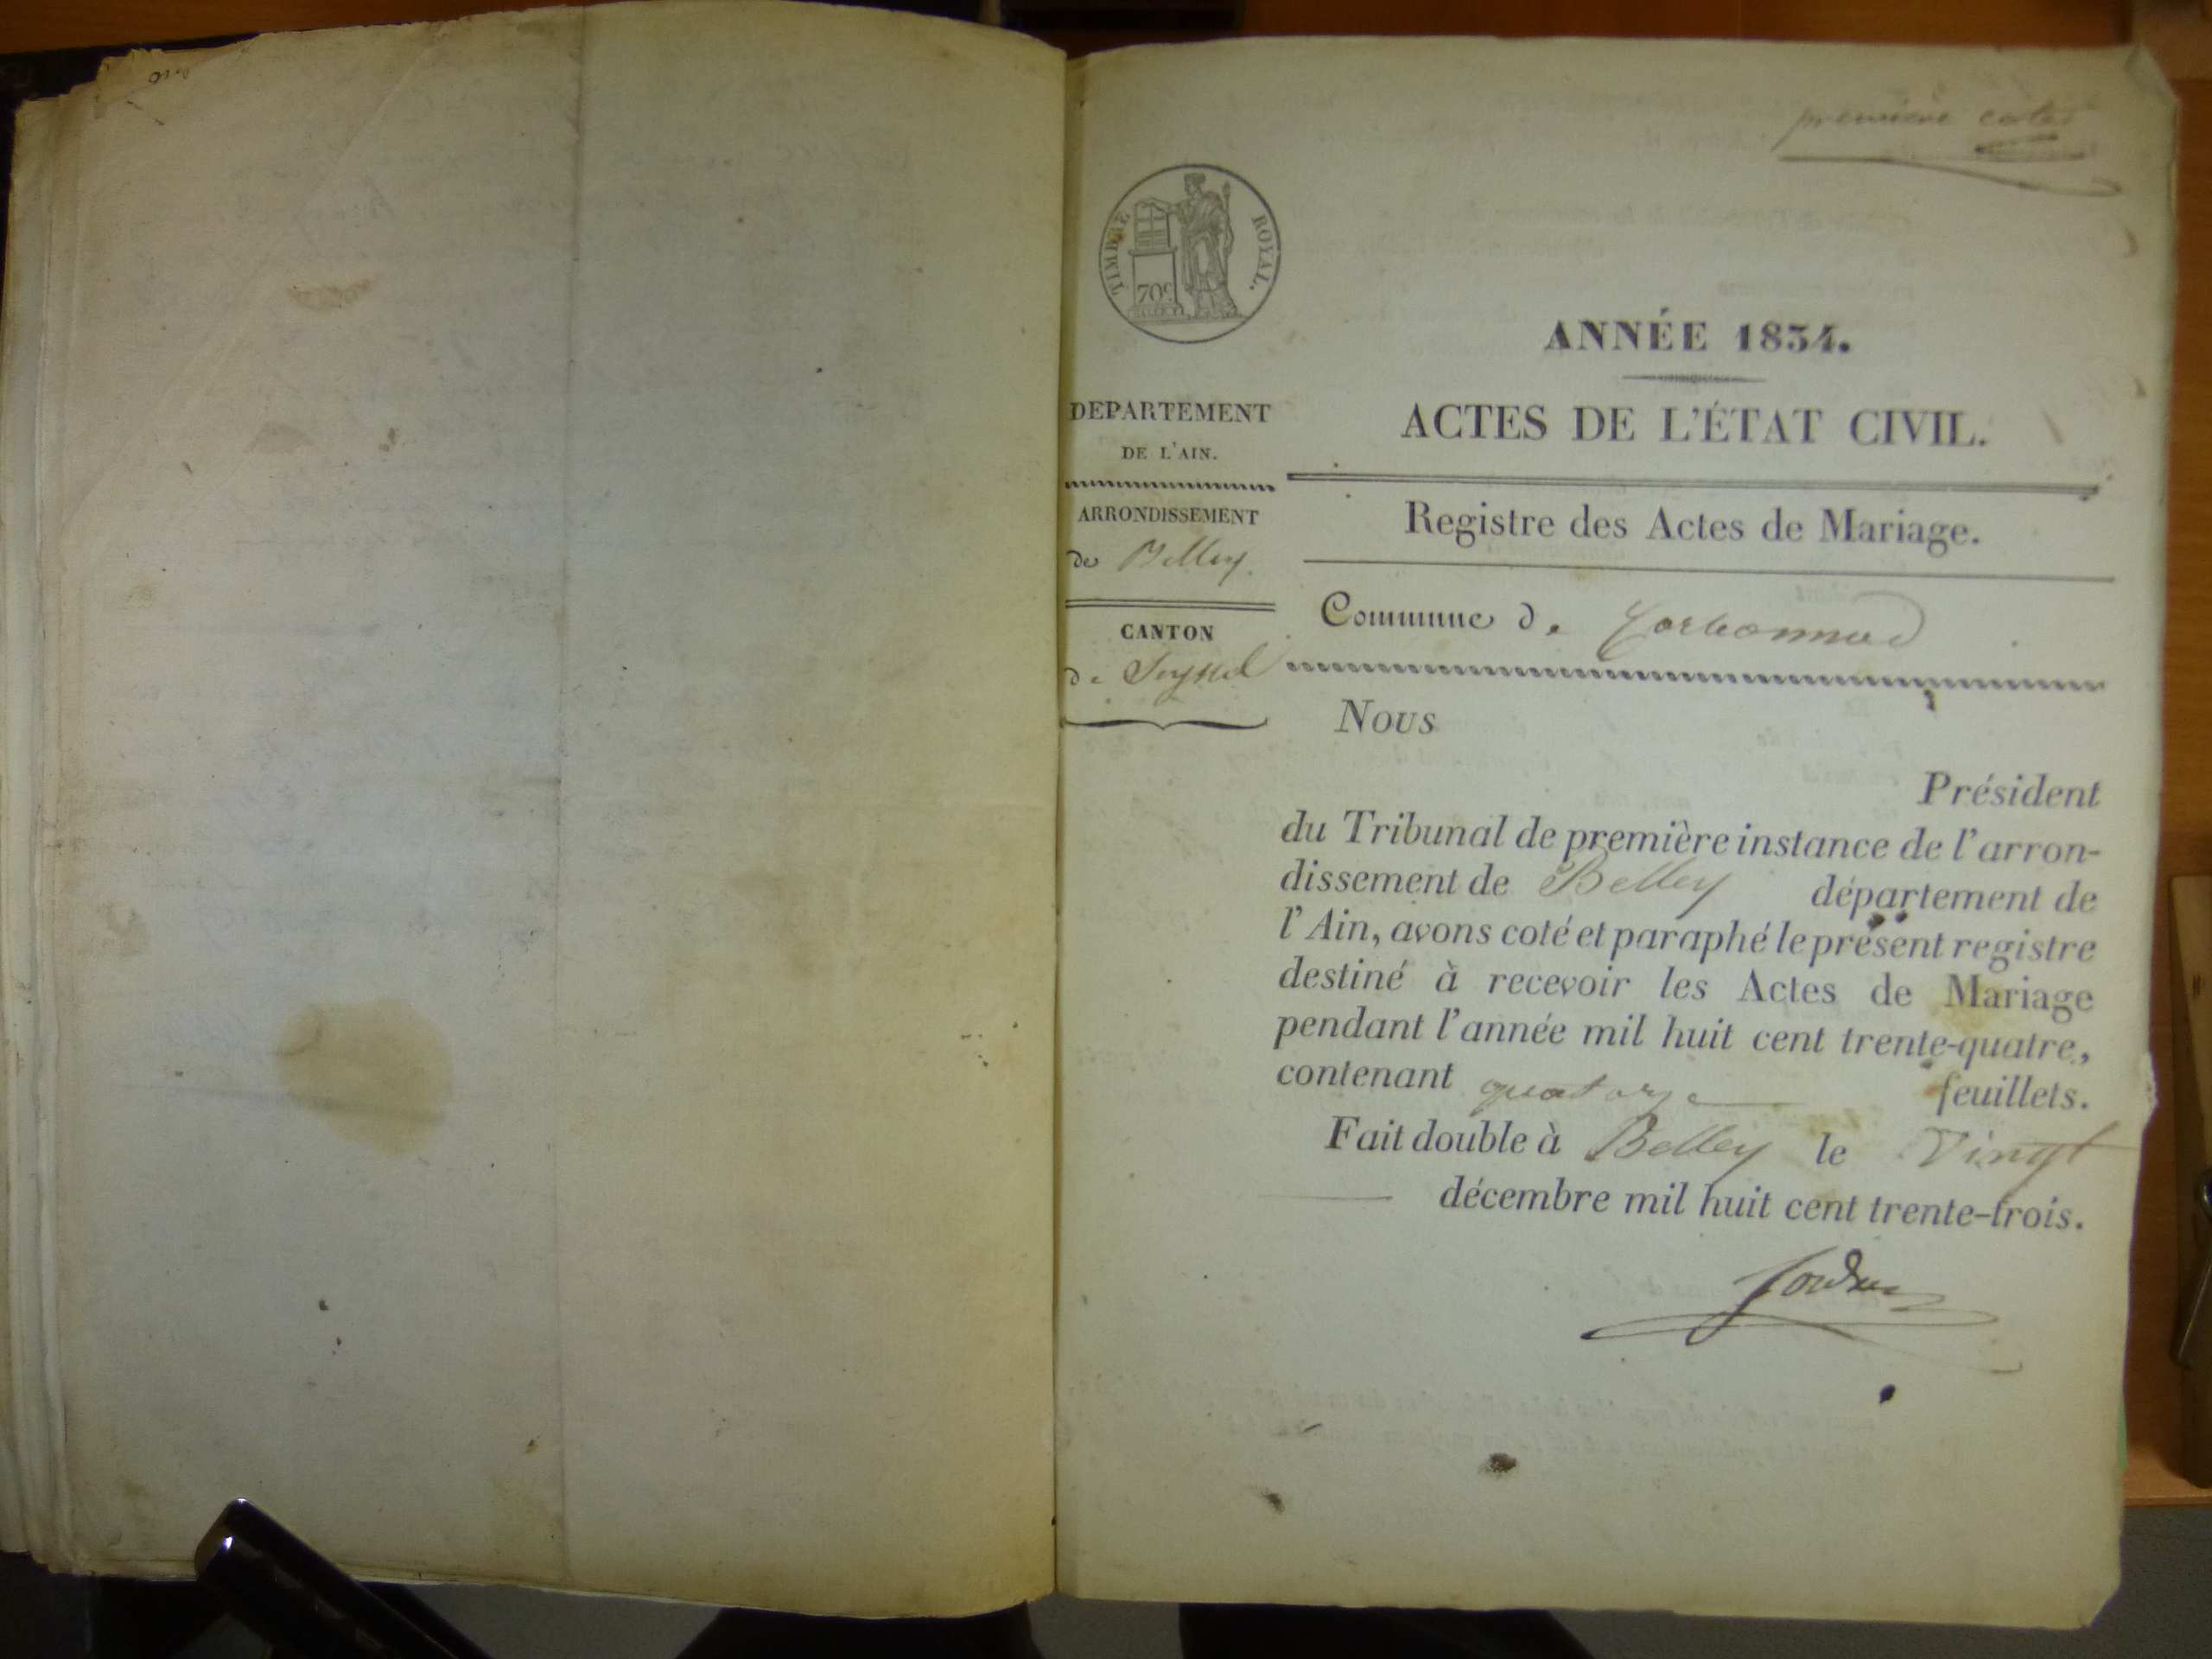 première cotte
TIMBRE ROYAL.
70c.
ANNÉE 1834.
DEPARTEMENT
DE L'AIN.
ACTES DE L'ÉTAT CIVIL.
ARRONDISSEMENT
de Belley
Registre des Actes de Mariage.
CANTON
de Seyssel
Commune de Corbonnod
Nous
Président
du Tribunal de première instance de l'arron-
dissement de Belley département de
l'Ain, avons coté et paraphé le présent registre
destiné à recevoir les Actes de Mariage
pendant l'année mil huit cent trente-quatre,
contenant quatorze feuillets.
Fait double à Belley le Vingt
décembre mil huit cent trente-trois.